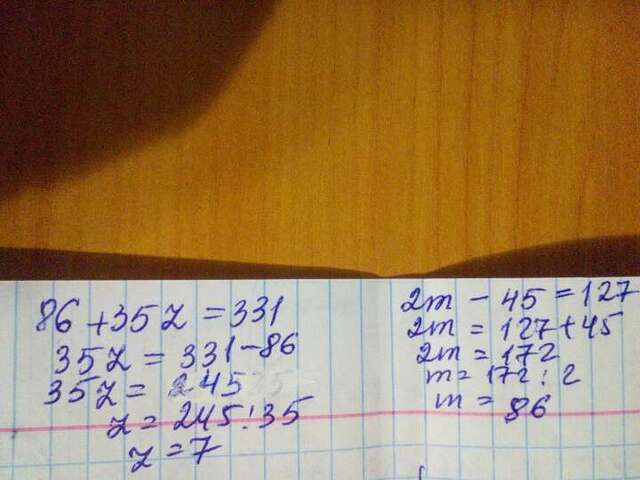 86 + 35z = 331
35z = 331 - 86
35z = 245
z = 245 : 35
z = 7
2m - 45 = 127
2m = 127 + 45
2m = 172
m = 172 : 2
m = 86